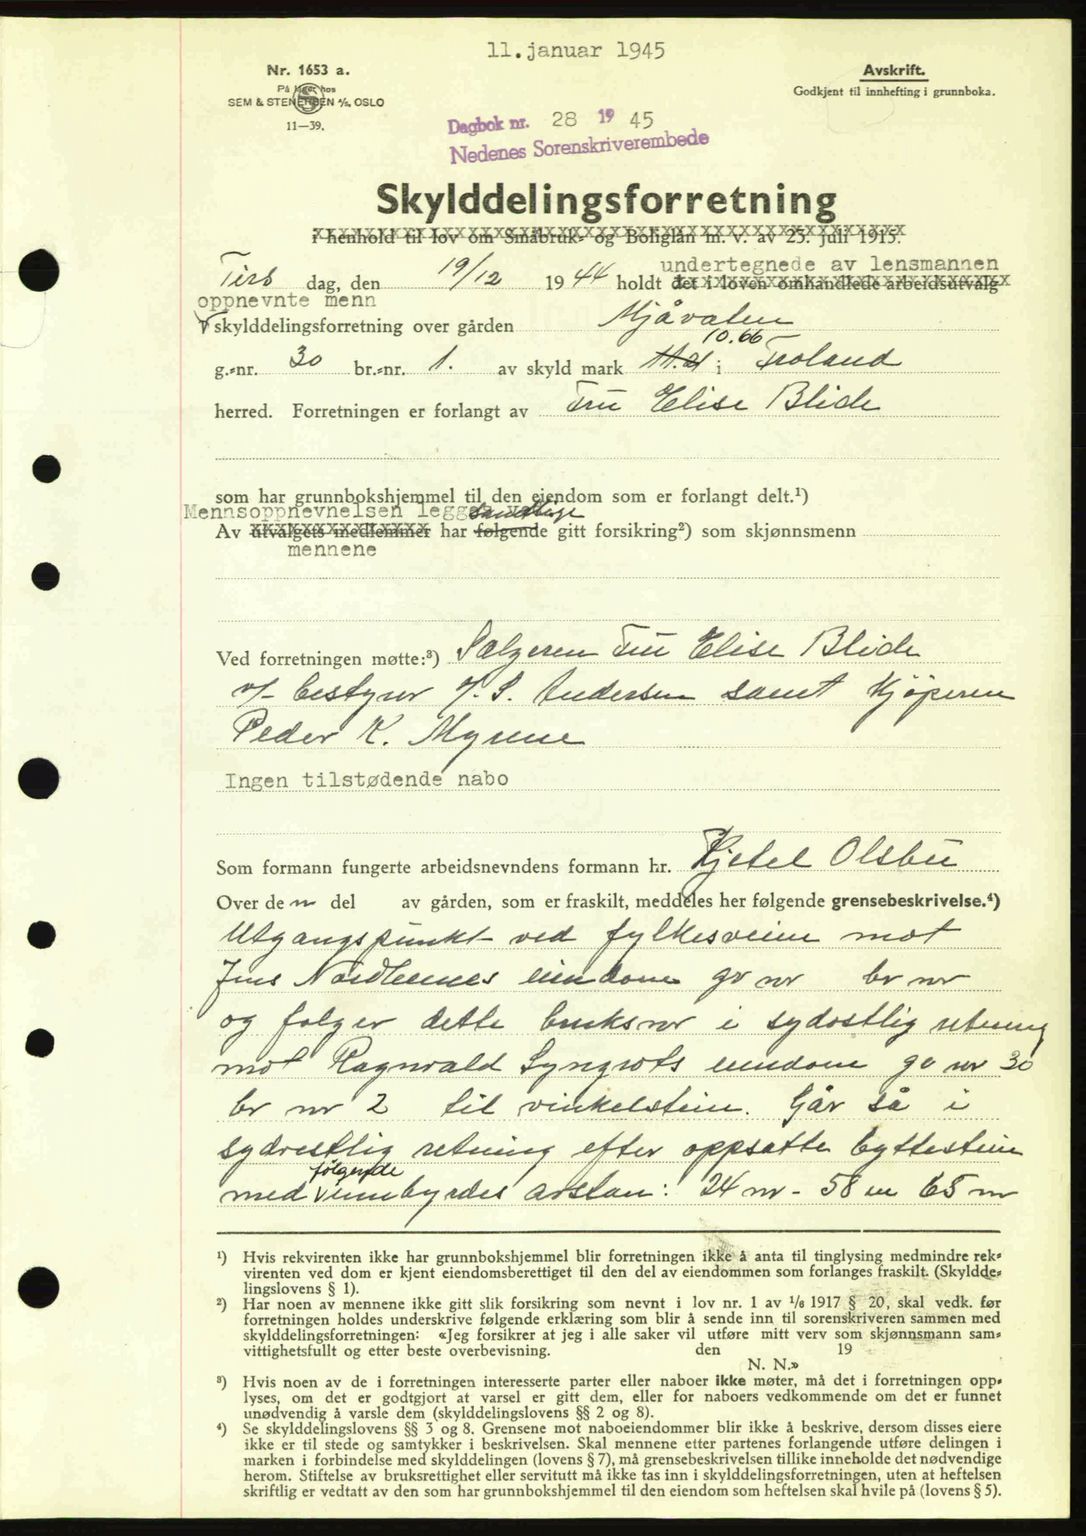 11. januar 1945
Nr. 1653 a.
På lager hos
SEM & STENERSEN A/S, OSLO
11—39.
Avskrift.
Godkjent til innhefting i grunnboka.
Dagbok nr. 28 19 45
Nedenes Sorenskriverembede
Skylddelingsforretning
i henhold til lov om Småbruk- og Boliglån m. v. av 23. juli 1915.
undertegnede av lensmannen
Tirs dag, den 19/12 1944 holdt det i loven omhandlede arbeidsutvalg
oppnevnte menn
V skylddelingsforretning over gården Mjåvatn
10.66
g.-nr. 30 br.-nr. 1. av skyld mark i Froland
herred. Forretningen er forlangt av Fru Elise Blide
som har grunnbokshjemmel til den eiendom som er forlangt delt.¹)
Mennsoppnevnelsen legges samtlige
Av utvalgets medlemmer har følgende gitt forsikring²) som skjønnsmenn
mennene
Ved forretningen møtte:³) Selgeren Fru Elise Blide
v/ bestyrer Andersen samt kjøperen
Peder K. Myrene
Ingen tilstødende nabo
Som formann fungerte arbeidsnevndens formann hr. Kjetel Olsbu
Over den del av gården, som er fraskilt, meddeles her følgende grensebeskrivelse.⁴)
Utgangspunkt ved fylkesveien mot
Jens eiendom gr nr br nr
og følger dette bruksnr i sydostlig retning
mot Ragnvald eiendom gr nr 30
br nr 2 til vinkelstein. Går så i
sydvestlig retning efter oppsatte byttestein
følgende
med V innbyrdes avstan: 24 m - 58 m 65 m
¹) Hvis rekvirenten ikke har grunnbokshjemmel blir forretningen ikke å anta til tinglysing medmindre rek-
virenten ved dom er kjent eiendomsberettiget til den del av eiendommen som forlanges fraskilt. (Skyldde-
lingslovens § 1).
²) Har noen av mennene ikke gitt slik forsikring som nevnt i lov nr. 1 av ¹/₆ 1917 § 20, skal vedk. før
forretningen holdes underskrive følgende erklæring som blir å sende inn til sorenskriveren sammen med
skylddelingsforretningen: «Jeg forsikrer at jeg i alle saker vil utføre mitt verv som skjønnsmann sam-
vittighetsfullt og etter beste overbevisning. den 19
N. N.»
³) Hvis noen av de i forretningen interesserte parter eller naboer ikke møter, må det i forretningen opp-
lyses, om det er godtgjort at varsel er gitt dem, eller for naboers vedkommende om det er funnet
unødvendig å varsle dem (skylddelingslovens §§ 2 og 8).
⁴) Se skylddelingslovens §§ 3 og 8. Grensene mot naboeiendommer blir ikke å beskrive, dersom disses eiere
ikke er til stede og samtykker i beskrivelsen. Skal mennene etter partenes forlangende utføre delingen i
marken i forbindelse med skylddelingen (lovens § 7), må grensebeskrivelsen tillike inneholde det nødvendige
herom. Stiftelse av bruksrettighet eller servitutt må ikke tas inn i skylddelingsforretningen, uten at heftelsen
skriftlig er vedtatt av den som har grunnbokshjemmel til den eiendom som heftelsen skal hvile på (lovens § 5).